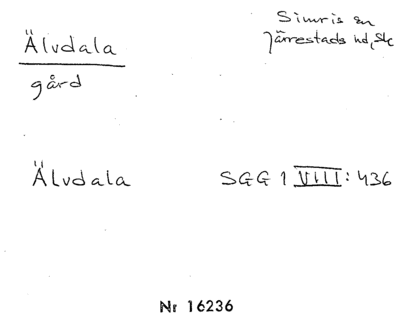 Älvdala
gård
Simris sn
Järrestads hd, Sk
Älvdala
SGG 1 VIII: 436
Nr 16236